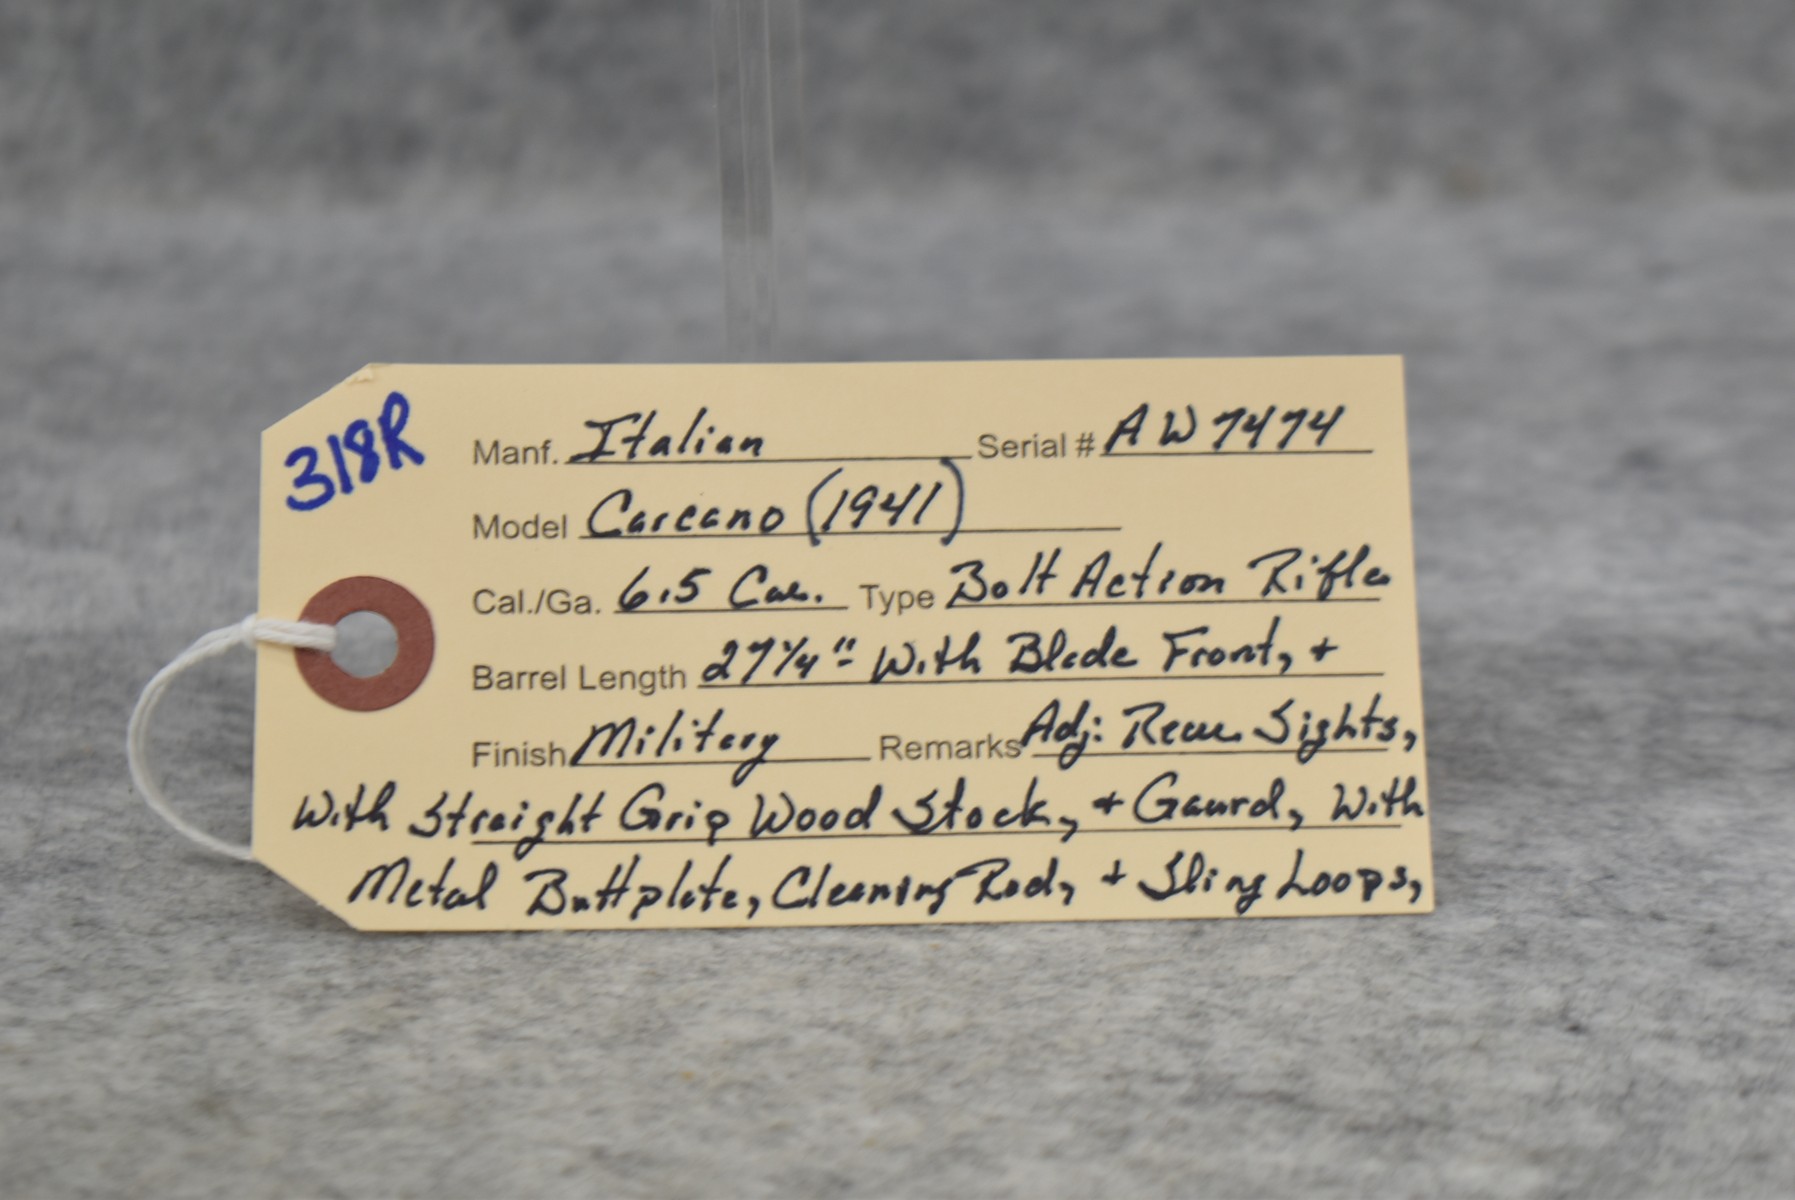 318R
Manf. Italian Serial # AW7474
Model Carcano (1941)
Cal./Ga. 6.5 Car. Type Bolt Action Rifle
Barrel Length 27 1/4" With Blade Front, +
Finish Military Remarks Adj: Rear Sights,
With Straight Grip Wood Stock, + Gaurd, With
Metal Buttplate, Cleaning Rod, + Sling Loops,